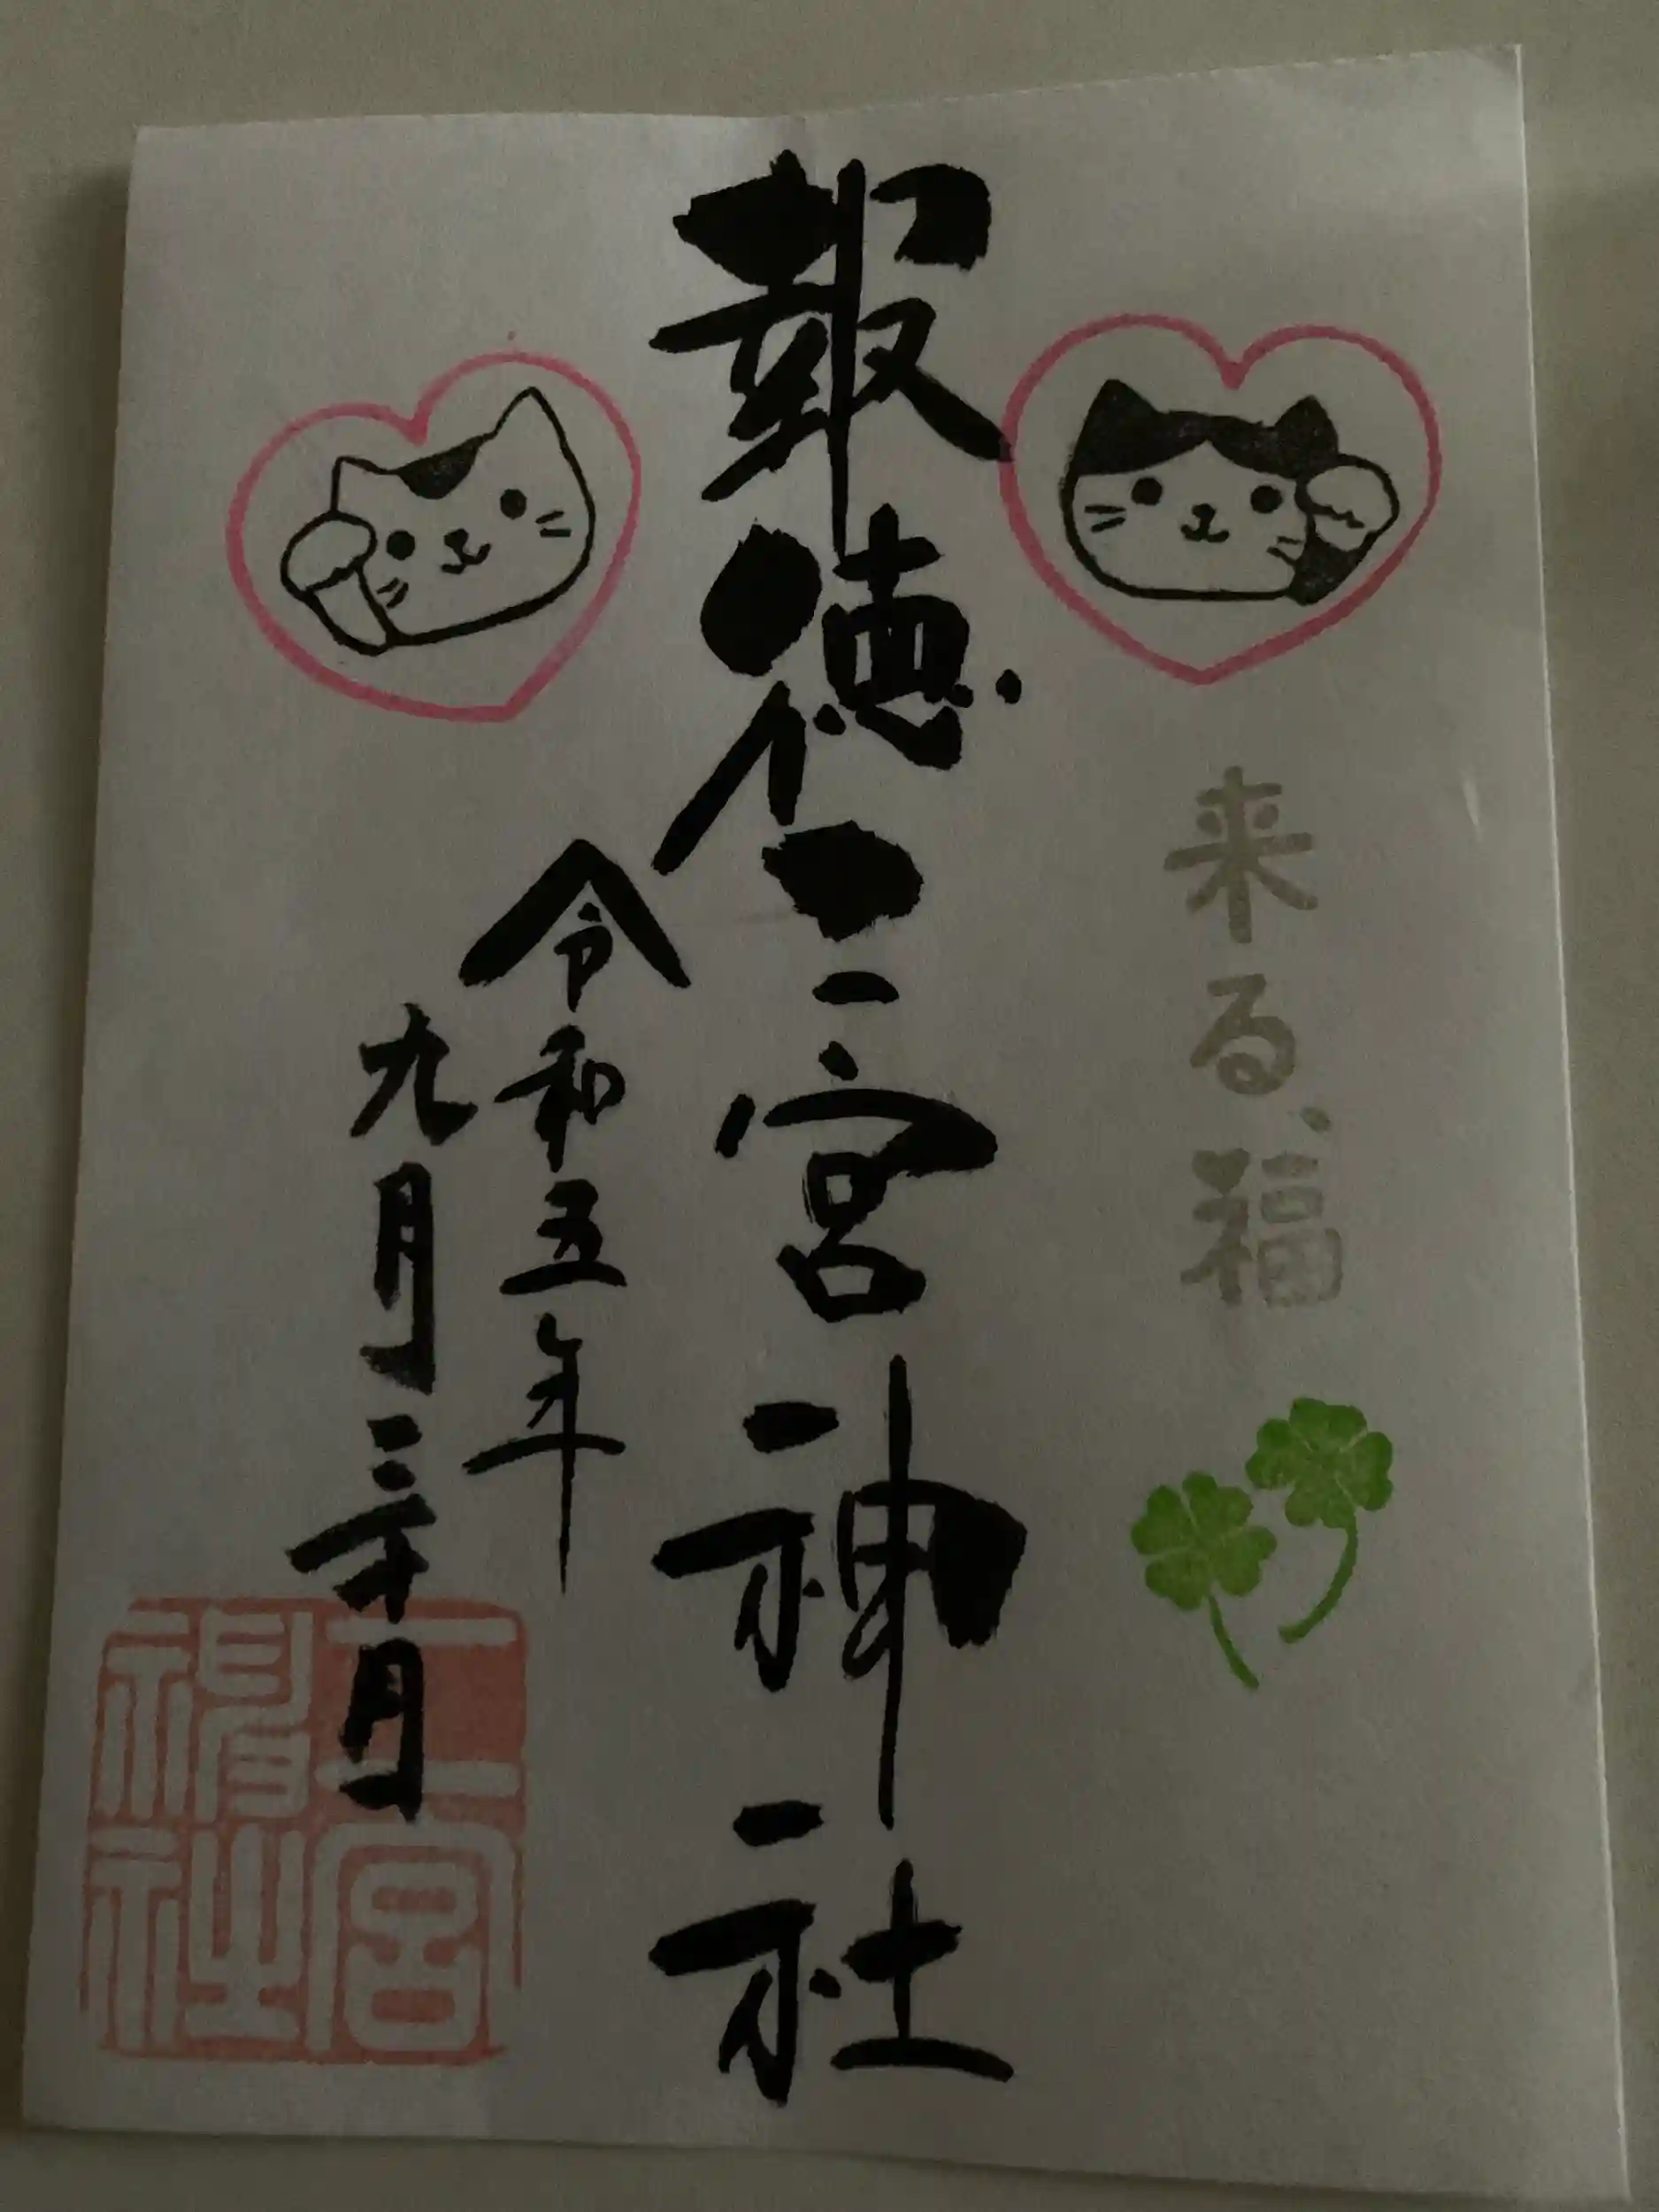 来る、福
報徳二宮神社
令和五年
九月三十日
二宮神社